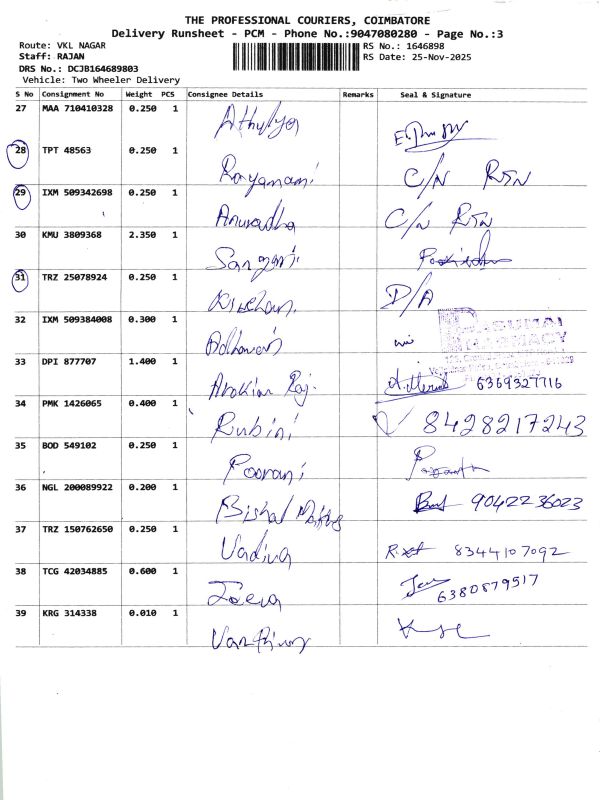 THE PROFESSIONAL COURIERS, COIMBATORE
Delivery Runsheet - PCM - Phone No.:9047080280 - Page No.:3
Route: VKL NAGAR RS No.: 1646898
Staff: RAJAN RS Date: 25-Nov-2025
DRS No.: DCJB164689803
Vehicle: Two Wheeler Delivery
S No Consignment No Weight PCS Consignee Details Remarks Seal & Signature
27 MAA 710410328 0.250 1
Athulya
28 TPT 48563 0.250 1
C/N RTN
29 IXM 509342698 0.250 1
Anuradha C/N RTN
30 KMU 3809368 2.350 1
31 TRZ 25078924 0.250 1
D/A
32 IXM 509384008 0.300 1
33 DPI 877707 1.400 1
Arokia Raj. 6369327716
34 PMK 1426065 0.400 1
Rubini 8428217243
35 BOD 549102 0.250 1
Poorani
36 NGL 200089922 0.200 1
Bishal 9042236023
37 TRZ 150762650 0.250 1
8344107092
38 TCG 42034885 0.600 1
6380879517
39 KRG 314338 0.010 1